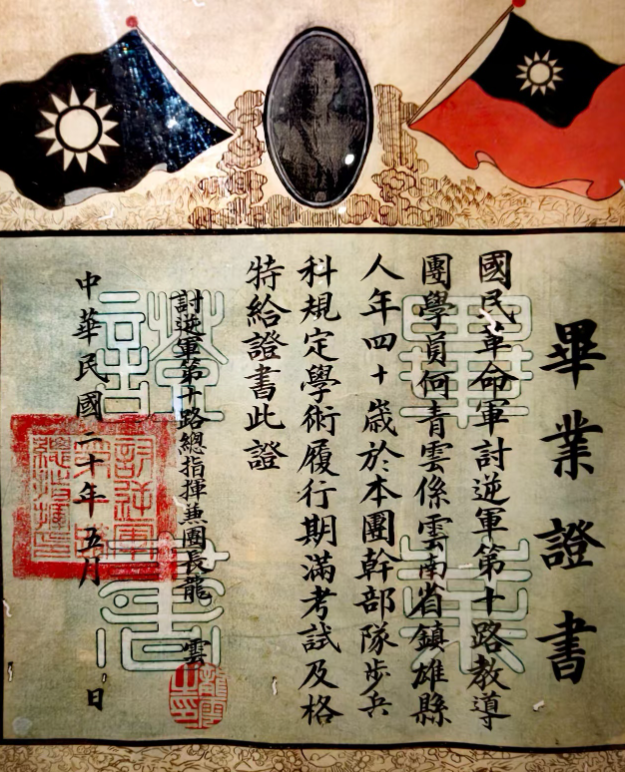 畢業證書
國民革命軍討逆軍第十路教導
團學員何青雲係雲南省鎮雄縣
人年四十歲於本團幹部隊步兵
科規定學術履行期滿考試及格
特給證書此證
討逆軍第十路總指揮兼團長龍雲
中華民國二十年五月日
畢業證書